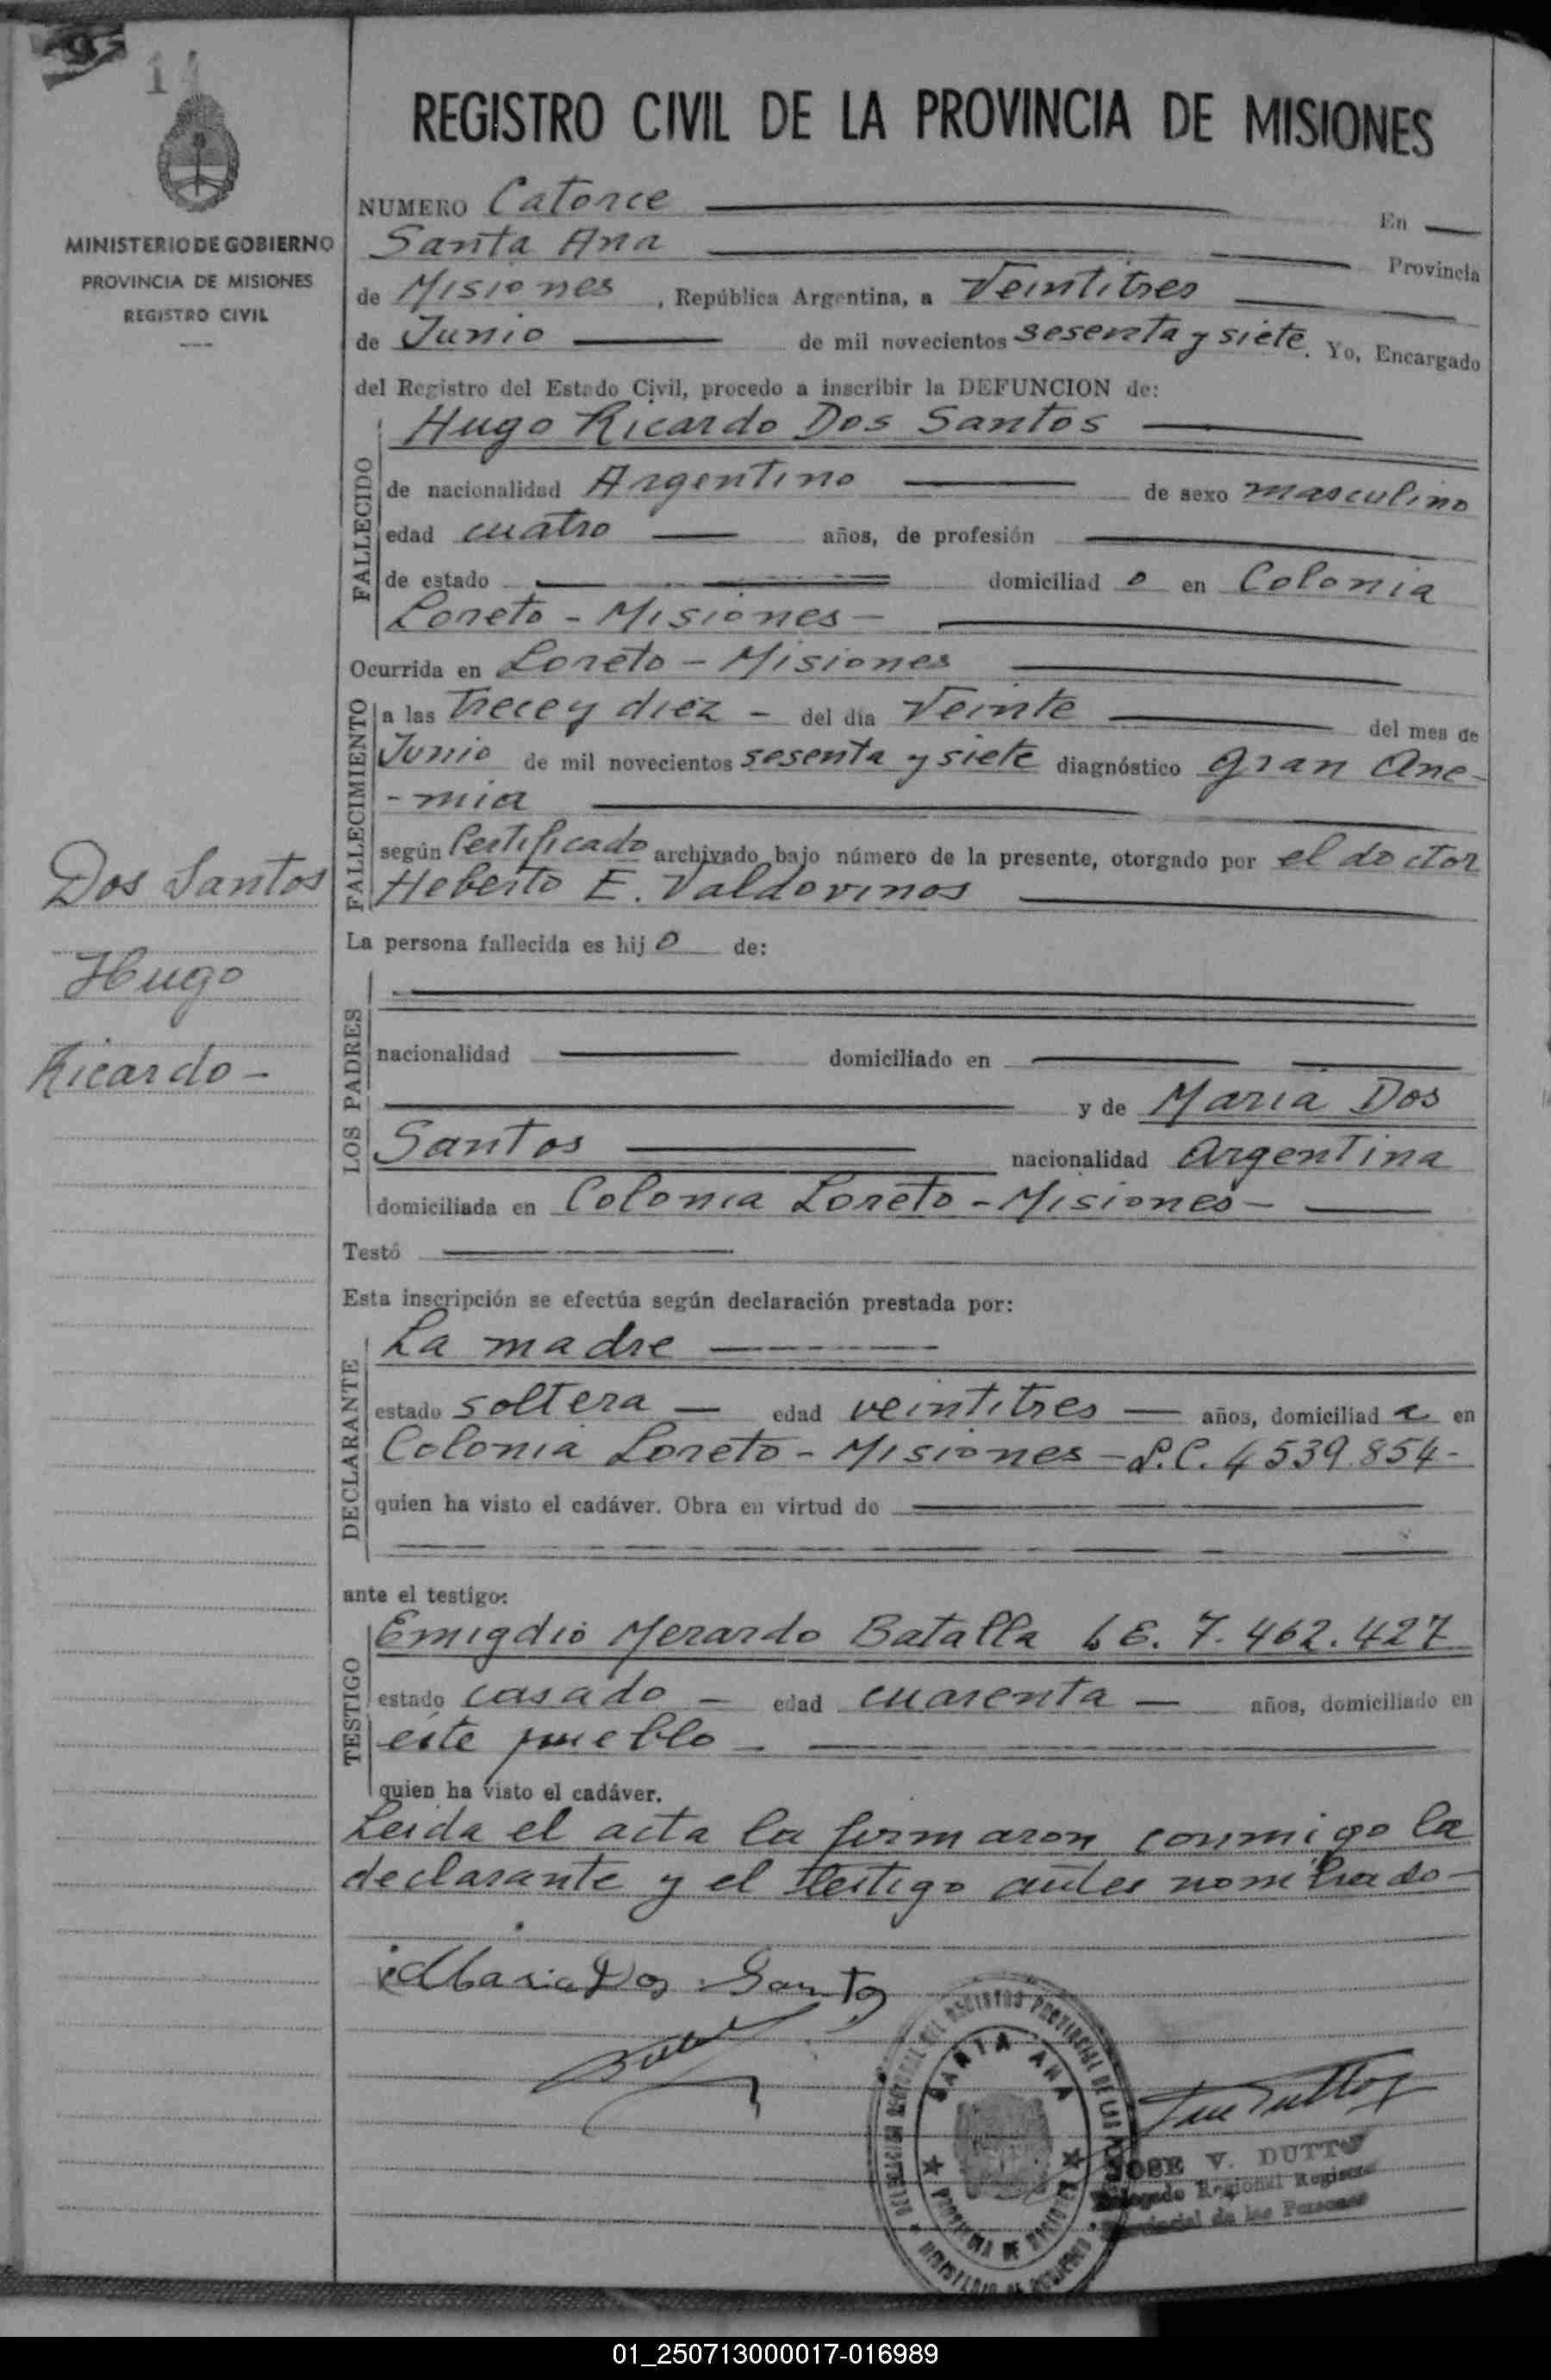 14
REGISTRO CIVIL DE LA PROVINCIA DE MISIONES
MINISTERIO DE GOBIERNO
PROVINCIA DE MISIONES
REGISTRO CIVIL
NUMERO Catorce En
Santa Ana Provincia
de Misiones, República Argentina, a Veintitres
de Junio de mil novecientos sesenta y siete. Yo, Encargado
del Registro del Estado Civil, procedo a inscribir la DEFUNCION de:
FALLECIDO
Hugo Ricardo Dos Santos
de nacionalidad Argentino de sexo masculino
edad cuatro años, de profesión
de estado domiciliad o en Colonia
Loreto - Misiones -
Ocurrida en Loreto - Misiones
FALLECIMIENTO
a las trece y diez - del día Veinte del mes de
Junio de mil novecientos sesenta y siete diagnóstico gran Ane-
- mia
según Certificado archivado bajo número de la presente, otorgado por el doctor
Heberto E. Valdovinos
Dos Santos
Hugo
Ricardo -
La persona fallecida es hij o de:
LOS PADRES
nacionalidad domiciliado en
y de Maria Dos
Santos nacionalidad Argentina
domiciliada en Colonia Loreto - Misiones -
Testó
Esta inscripción se efectúa según declaración prestada por:
DECLARANTE
La madre
estado soltera - edad veintitres - años, domiciliad a en
Colonia Loreto - Misiones - L.C. 4539.854 -
quien ha visto el cadáver. Obra en virtud de
ante el testigo:
TESTIGO
Emigdio Merardo Batalla LE. 7.462.427
estado casado - edad cuarenta - años, domiciliado en
este pueblo -
quien ha visto el cadáver.
Leida el acta la firmaron conmigo la
declarante y el testigo antes nombrado -
Maria Dos Santos
SANTA ANA
PROVINCIA DE MISIONES
MINISTERIO DE GOBIERNO
JOSE V. DUTTO
Delegado Regional Registro
Provincial de las Personas
01_250713000017-016989